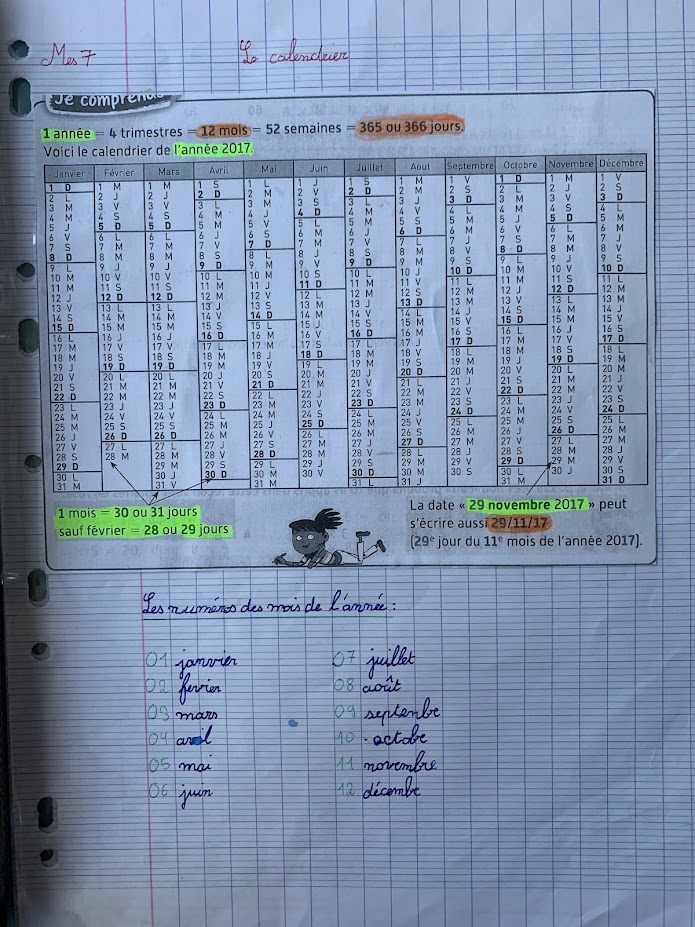 Mes 7 Le calendrier
Je comprends
1 année = 4 trimestres = 12 mois = 52 semaines = 365 ou 366 jours.
Voici le calendrier de l'année 2017.
Janvier Février Mars Avril Mai Juin Juillet Aout Septembre Octobre Novembre Décembre
1 D 1 M 1 M 1 S 1 L 1 J 1 S 1 M 1 V 1 D 1 M 1 V
2 L 2 J 2 J 2 D 2 M 2 V 2 D 2 M 2 S 2 L 2 J 2 S
3 M 3 V 3 V 3 L 3 M 3 S 3 L 3 J 3 D 3 M 3 V 3 D
4 M 4 S 4 S 4 M 4 J 4 D 4 M 4 V 4 L 4 M 4 S 4 L
5 J 5 D 5 D 5 M 5 V 5 L 5 M 5 S 5 M 5 J 5 D 5 M
6 V 6 L 6 L 6 J 6 S 6 M 6 J 6 D 6 M 6 V 6 L 6 M
7 S 7 M 7 M 7 V 7 D 7 M 7 V 7 L 7 J 7 S 7 M 7 J
8 D 8 M 8 M 8 S 8 L 8 J 8 S 8 M 8 V 8 D 8 M 8 V
9 L 9 J 9 J 9 D 9 M 9 V 9 D 9 M 9 S 9 L 9 J 9 S
10 M 10 V 10 V 10 L 10 M 10 S 10 L 10 J 10 D 10 M 10 V 10 D
11 M 11 S 11 S 11 M 11 J 11 D 11 M 11 V 11 L 11 M 11 S 11 L
12 J 12 D 12 D 12 M 12 V 12 L 12 M 12 S 12 M 12 J 12 D 12 M
13 V 13 L 13 L 13 J 13 S 13 M 13 J 13 D 13 M 13 V 13 L 13 M
14 S 14 M 14 M 14 V 14 D 14 M 14 V 14 L 14 J 14 S 14 M 14 J
15 D 15 M 15 M 15 S 15 L 15 J 15 S 15 M 15 V 15 D 15 M 15 V
16 L 16 J 16 J 16 D 16 M 16 V 16 D 16 M 16 S 16 L 16 J 16 S
17 M 17 V 17 V 17 L 17 M 17 S 17 L 17 J 17 D 17 M 17 V 17 D
18 M 18 S 18 S 18 M 18 J 18 D 18 M 18 V 18 L 18 M 18 S 18 L
19 J 19 D 19 D 19 M 19 V 19 L 19 M 19 S 19 M 19 J 19 D 19 M
20 V 20 L 20 L 20 J 20 S 20 M 20 J 20 D 20 M 20 V 20 L 20 M
21 S 21 M 21 M 21 V 21 D 21 M 21 V 21 L 21 J 21 S 21 M 21 J
22 D 22 M 22 M 22 S 22 L 22 J 22 S 22 M 22 V 22 D 22 M 22 V
23 L 23 J 23 J 23 D 23 M 23 V 23 D 23 M 23 S 23 L 23 J 23 S
24 M 24 V 24 V 24 L 24 M 24 S 24 L 24 J 24 D 24 M 24 V 24 D
25 M 25 S 25 S 25 M 25 J 25 D 25 M 25 V 25 L 25 M 25 S 25 L
26 J 26 D 26 D 26 M 26 V 26 L 26 M 26 S 26 M 26 J 26 D 26 M
27 V 27 L 27 L 27 J 27 S 27 M 27 J 27 D 27 M 27 V 27 L 27 M
28 S 28 M 28 M 28 V 28 D 28 M 28 V 28 L 28 J 28 S 28 M 28 J
29 D 29 M 29 S 29 L 29 J 29 S 29 M 29 V 29 D 29 M 29 V
30 L 30 J 30 D 30 M 30 V 30 D 30 M 30 S 30 L 30 J 30 S
31 M 31 V 31 M 31 L 31 J 31 M 31 D
1 mois = 30 ou 31 jours
sauf février = 28 ou 29 jours
La date « 29 novembre 2017 » peut
s'écrire aussi 29/11/17
(29e jour du 11e mois de l'année 2017).
Les numéros des mois de l'année :
01 janvier 07 juillet
02 fevrier 08 août
03 mars 09 septenbe
04 avril 10 octobe
05 mai 11 novembre
06 juin 12 décembe